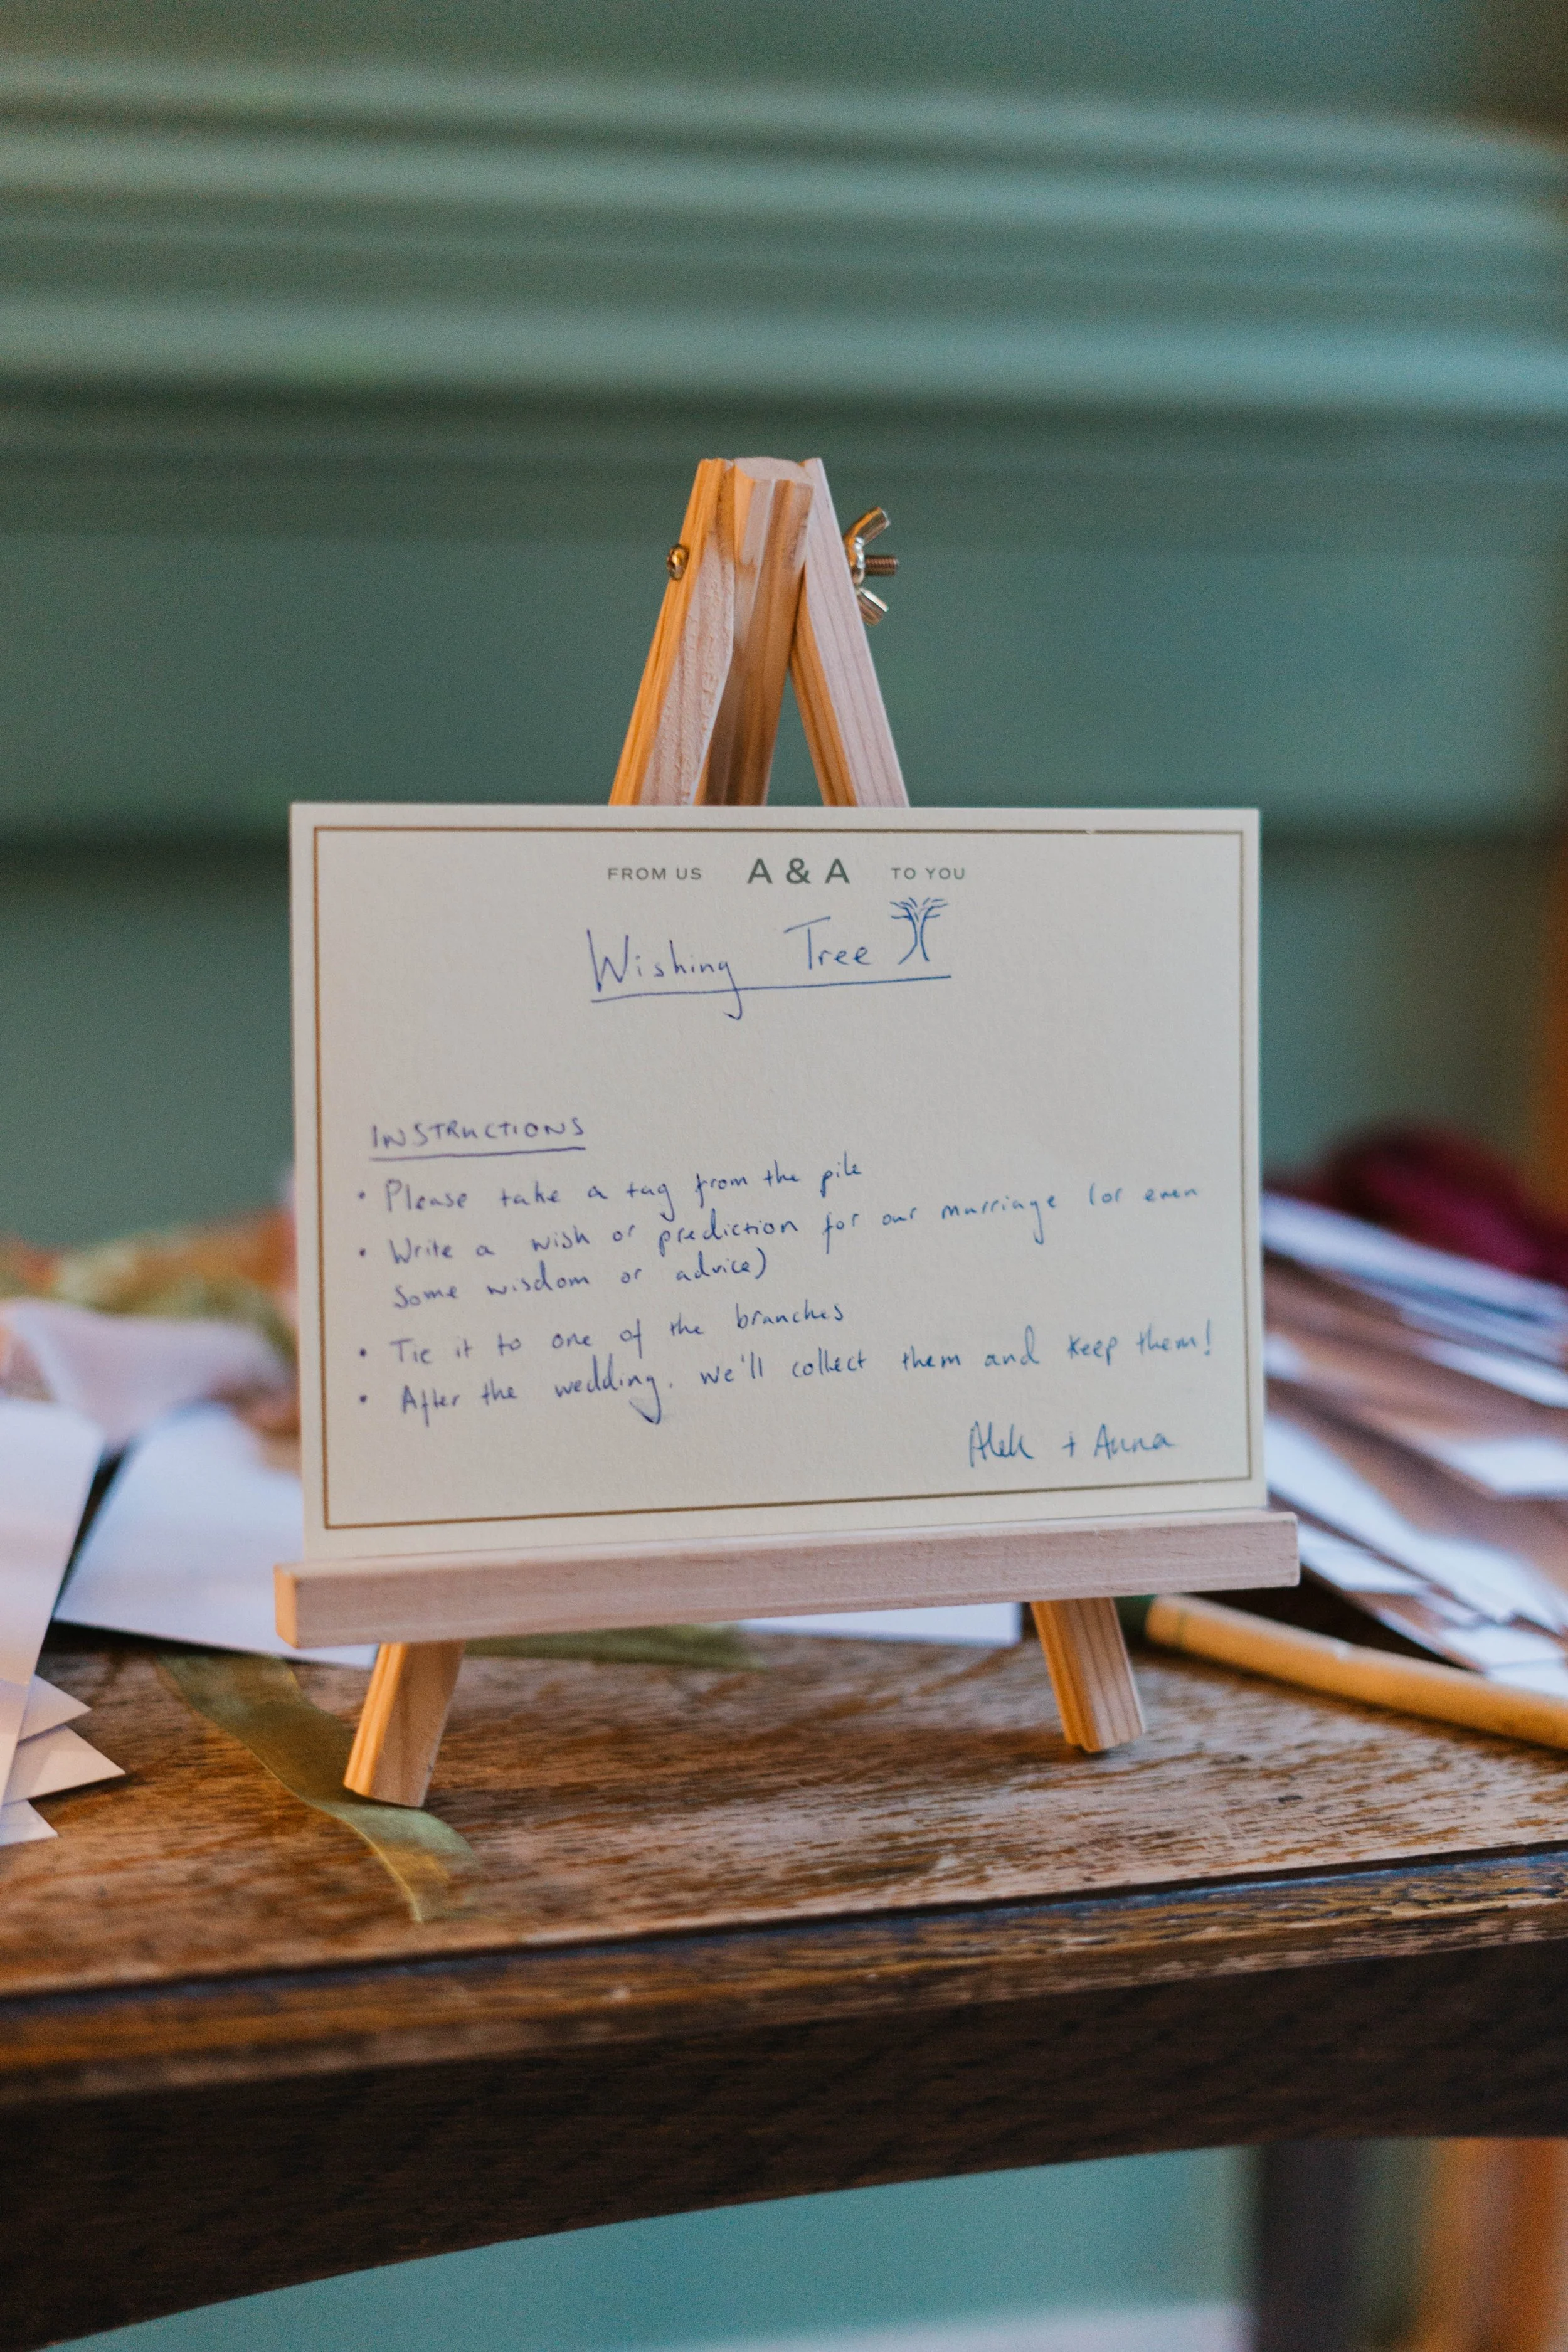 FROM US A & A TO YOU
Wishing Tree
INSTRUCTIONS
• Please take a tag from the pile
• Write a wish or prediction for our marriage (or even
some wisdom or advice)
• Tie it to one of the branches
• After the wedding, we'll collect them and keep them!
Alek + Anna